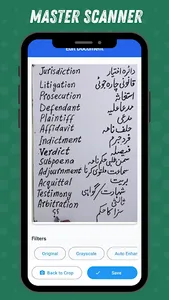 MASTER SCANNER
Edit Document
Jurisdiction دائرہ اختیار
Litigation قانونی چارہ جوئی
Prosecution استغاثہ
Defendant مدعا علیہ
Plaintiff مدعی
Affidavit حلف نامہ
Indictment فرد جرم
Verdict فیصلہ
Subpoena
Adjournment سماعت ملتوی کرنا
Acquittal بریت
Testimony شہادت / گواہی
Arbitration ثالثی
سزا کا حکم
Filters
Original Grayscale Auto Enhan
Back to Crop Save